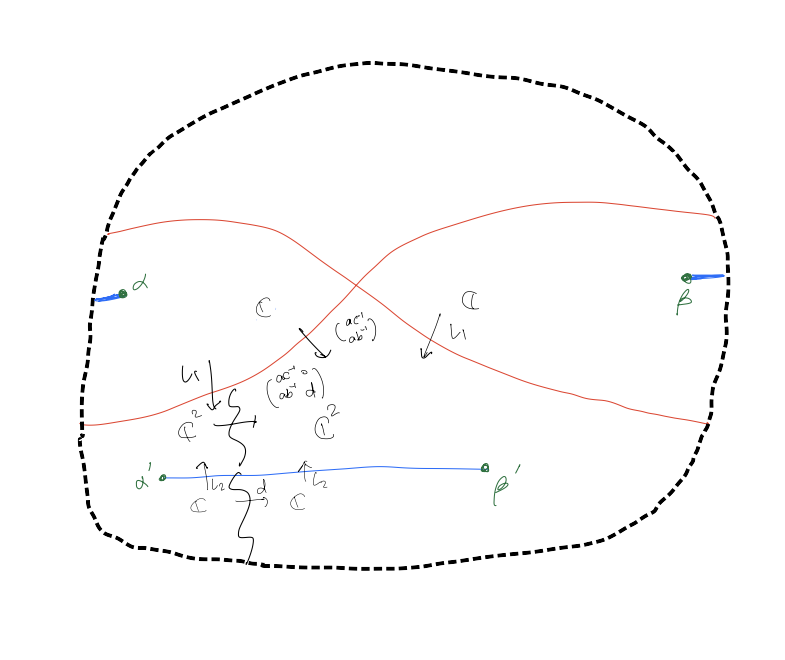 α
β
ℂ
ℂ
(ac⁻¹
ab⁻¹)
ι₁
ι₁
(ac⁻¹ 0
ab⁻¹ d)
ℂ²
ℂ²
α'
ι₂
ι₂
β'
ℂ
d
ℂ